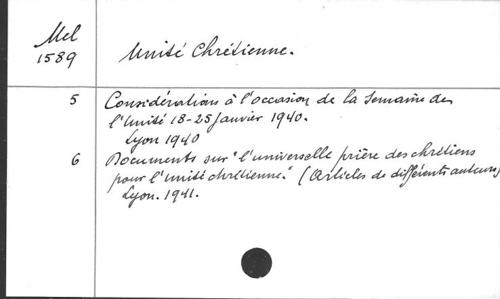 Mel
1589
Unité Chrétienne.
5 Considérations à l'occasion de la Semaine de
l'Unité 18-25 Janvier 1940.
Lyon 1940
6 Documents sur "l'universelle prière des chrétiens
pour l'unité chrétienne." (Articles de différents auteurs)
Lyon. 1941.